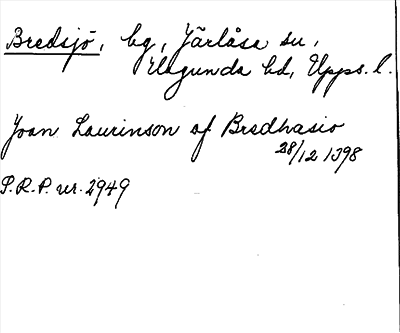 Bredsjö, by, Järlåsa sn,
Hagunda hd, Upps. l.
Joan Laurinson af Bredhasio
28/12 1398
P.R.P. nr. 2949